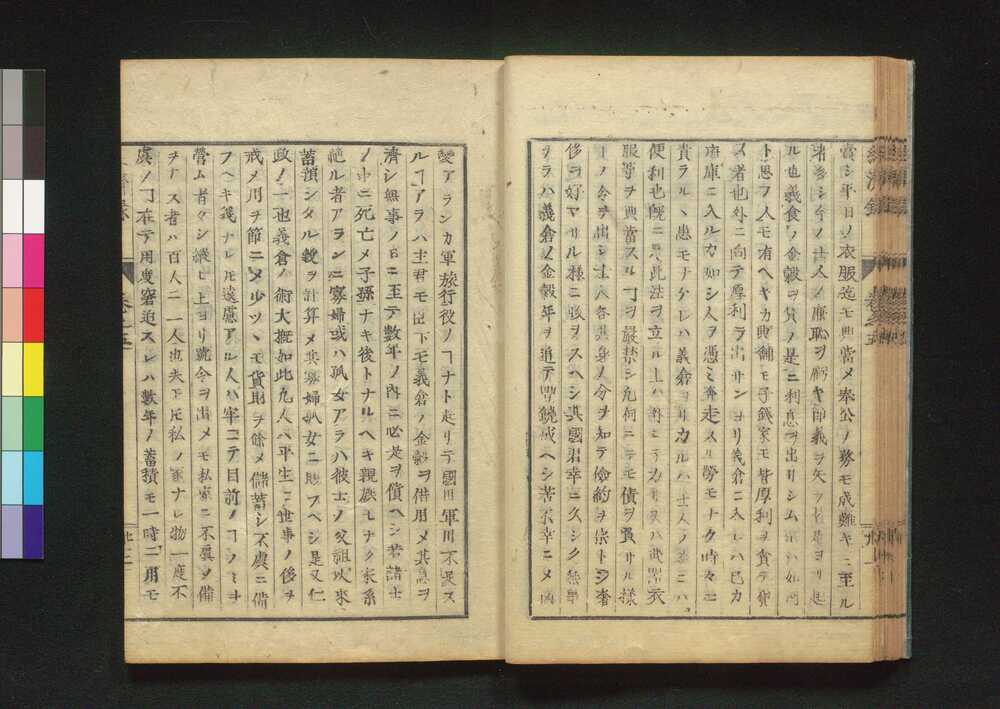 當シ平日ノ衣服迄モ典當メ奉公ノ務モ成難キニ至ル
者多シ今ノ士人ノ廉恥ヲ虧キ節義ヲ失フ
ル也義食ノ金穀ヲ貸ノ是ニ利息ヲ出サシム
ト思フ人モ有ヘケカ典舗モ子錢家モ皆厚利ヲ貪テ貸
ス者也外ニ向テ厚利ヲ出サンヨリ義倉ニ入レハ已カ
庫ニ入ルカ如シ人ヲ憑ミ奔走スル勞モナク時々ニ
責ラルヽ患モナケレハ義倉ヨリカルハ士人ノ
便利也既ニ此法ヲ立ル上ハ
服等ヲ典當スルヿヲ嚴禁シ凡何ニテモ債ヲ買サル様
ノ令ヲ出シ士人各其身ノ分ヲ知テ儉約ヲ崇トシ奢
侈ヲ好マサル様ニ教ヲスヘシ其國君幸ニ久シク無事
ヲラハ義倉ノ金穀年ヲ追テ豊饒成ヘシ若不幸ニメ凶
變アランカ軍旅行役ノヿナト起リテ國用軍用不足ス
ルヿアラハ主君モ臣下モ義倉ノ金穀ヲ借用メ其急ヲ
濟シ無事ノ日ニ至テ數年ノ内ニ必是ヲ償ヘシ若諸士
ノ中ニ死亡メ子孫ナキ後トナルヘキ親族モナク家系
絶ル者アランニ寡婦或ハ孤女アラハ彼士ノ父祖以來
蓄積シタル穀ヲ計算メ其寡婦孤女ニ賜フベシ是又仁
政ノ一也義倉ノ術大概如此凡人ハ平生ニ世事ノ後ヲ
戒メ用ヲ節ニメ少ツヽモ貨財ヲ餘メ儲蓄シ不虞ニ備
フヘキ義ナレ𪜈遠慮アル人ハ罕ニテ目前ノヿノミヲ
營ム者多シ縱ヒ上ヨリ號令ヲ出メモ私家ニ不虞ノ備
ヲナス者ハ百人ニ一人也夫下𪜈私ノ家ナレハ物一度不
虞ノヿ在テ用度窘迫スレハ數年ノ蓄積モ一時ニ用モ
經濟錄
卷之五